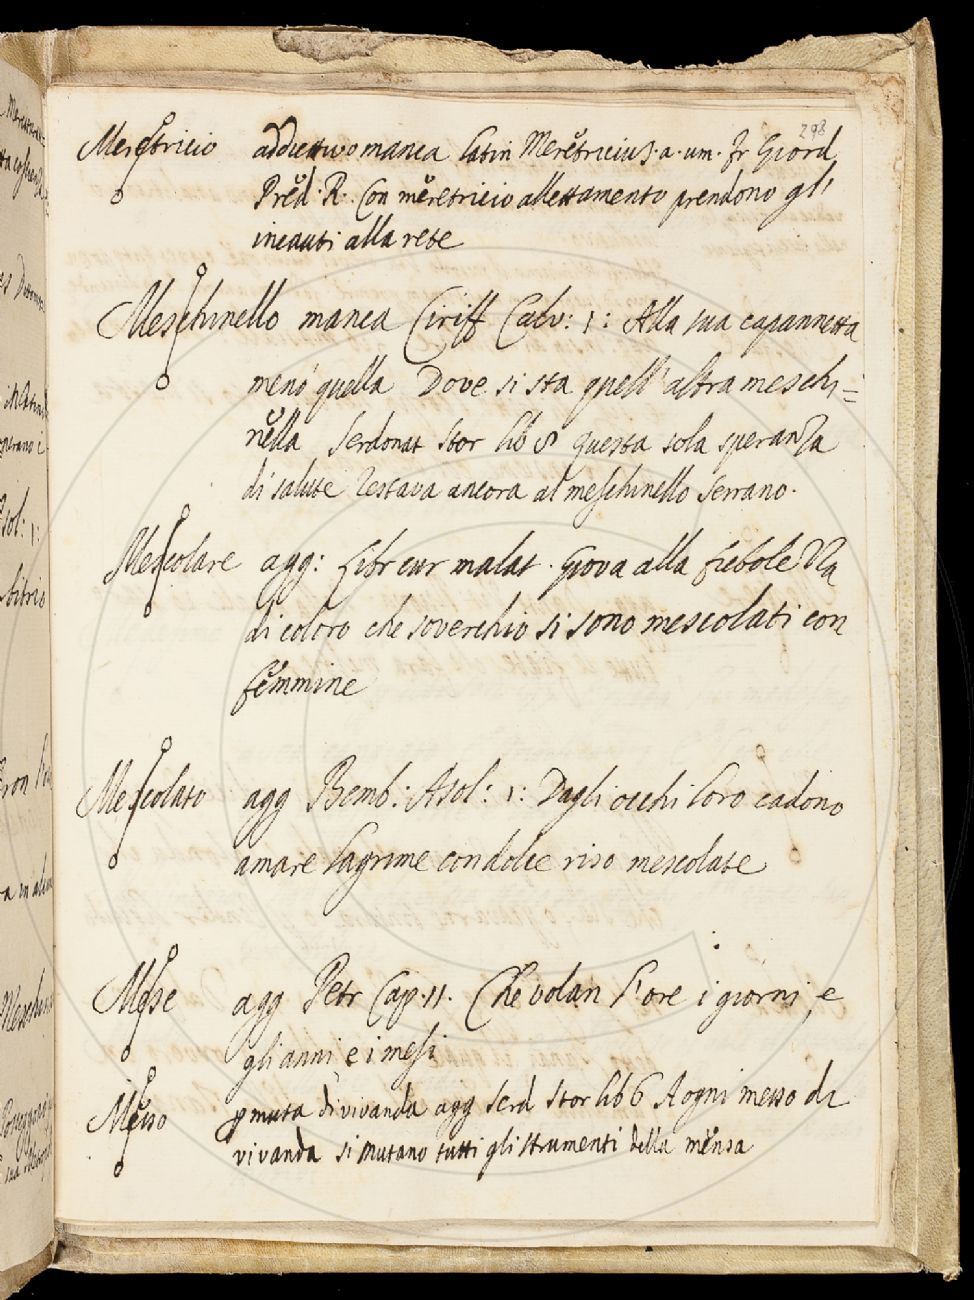 298
Meretricio addiettivo manca latin Meretricius.a.um. fr Giord
Pred. R. Con meretricio allettamento prendono gl'
incauti alla rete
Meschinello manca Ciriff Calv: 1: Alla sua capannetta
menò quella Dove si sta quell'altra meschi=
nella Serdonat Stor lib 8 questa sola speranza
di salute restava ancora al meschinello Serrano.
Mescolare agg: Libr cur malat. Giova alla fiebolezza
di coloro che soverchio si sono mescolati con
femmine
Mescolato agg Bemb: Asol: 1: Dagli occhi loro cadono
amare lagrime con dolce riso mescolate
Mese agg Petr Cap. 11. Che volan l'ore i giorni, e
gli anni e i mesi
Messo p muta di vivanda agg Serd Stor lib 6 A ogni messo di
vivanda si mutano tutti gli strumenti della mensa